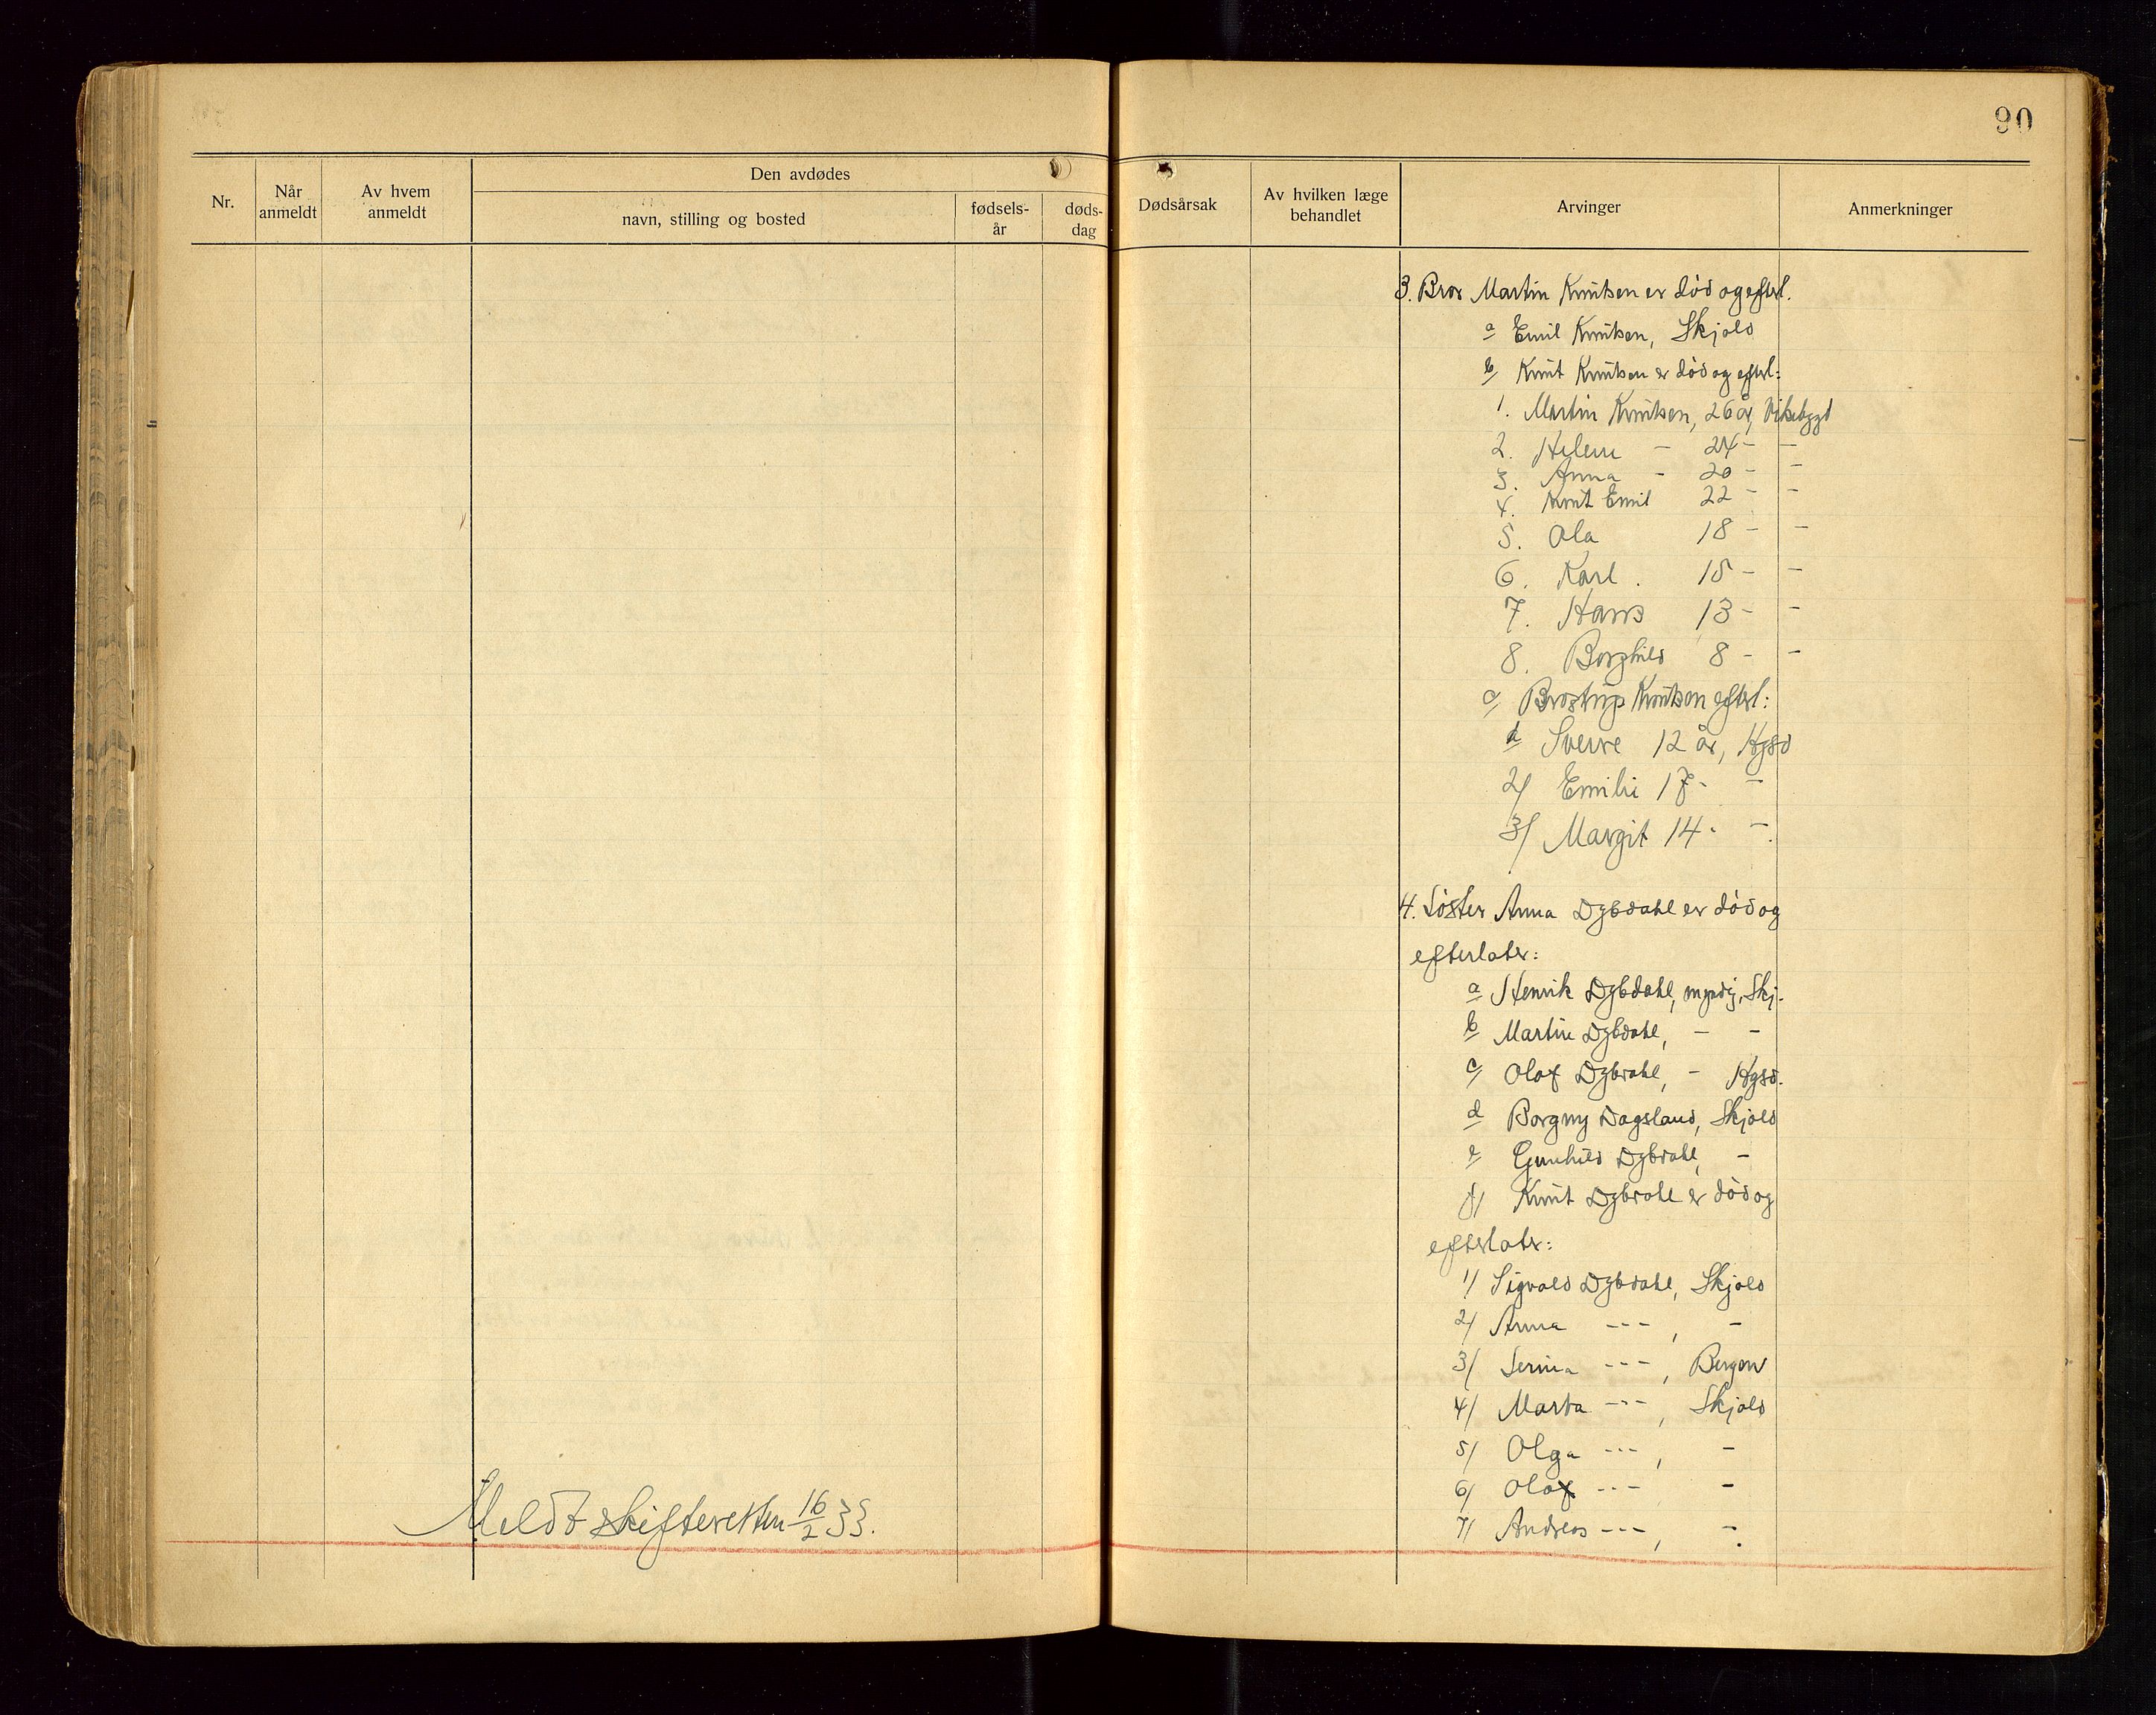 90
Nr.
Når anmeldt
Av hvem anmeldt
Den avdødes
navn, stilling og bosted
fødsels-år
døds-dag
Dødsårsak
Av hvilken læge behandlet
Arvinger
Anmerkninger
3. Bror Martin Knutsen er död og efterl.
a Emil Knutsen, Skjold
b Knut Knutsen er död og efterl:
1. Martin Knutsen, 26 år, Vikebygd
2. Helene - 24 - -
3. Anna - 20 - -
4. Knut Emil 22 - -
5. Ola 18 - -
6. Karl . 15 - -
7. Hans 13 - -
8. Borghild 8 - -
c/ Brostrup Knutsen efterl:
Sverre 12 år, Hgsd
2/ Emilie 17 - -
3/ Margit 14 - -.
4. Söster Anna Dybdahl er död og
efterlater:
a Henrik Dybdahl, myndig, Skj.
b Martin Dybdahl, - -
c/ Olaf Dybdahl, - Hgsd.
d Borgny Dagsland, Skjold
e Gunhild Dybdahl, -
f/ Knut Dybdahl er död og
efterlater:
1/ Sigvald Dybdahl, Skjold
2/ Anna ---, -
3/ Serina ---, Bergen
4/ Marta ---, Skjold
5/ Olga ---, -
6/ Olaf --- -
7/ Andreas ---, -.
Meldt skifteretten 16/2 33.